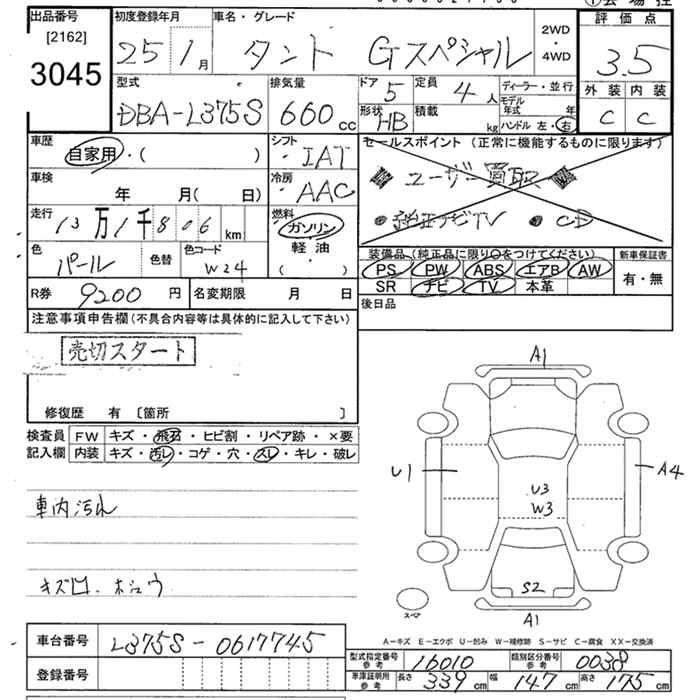 出品番号 [2162] 3045
初度登録年月 25 1月
車名・グレード タント Gスペシャル
2WD・4WD
評価点 3.5
外装 C 内装 C
型式 DBA-L375S
排気量 660 cc
ドア 5 定員 4人
形状 HB 積載 kg
ディーラー・並行
モデル年式 年
ハンドル 左・右
車歴 自家用・( )
シフト IAT
車検 年 月( 日)
冷房 AAC
走行 13万1千806 km
燃料 ガソリン 軽油・( )
色 パール 色替
色コード W24
R券 9200 円
名変期限 月 日
セールスポイント (正常に機能するものに限ります)
ユーザー買取
純正ナビTV CD
装備品 (純正品に限り○をつけてください)
PS PW ABS エアB AW
SR ナビ TV 本革
新車保証書 有・無
後日品
注意事項申告欄 (不具合内容等は具体的に記入して下さい)
売切スタート
修復歴 有 [箇所 ]
検査員記入欄
FW キズ・飛石・ヒビ割・リペア跡・×要
内装 キズ・汚レ・コゲ・穴・スレ・キレ・破レ
車内汚れ
A1
U1
A4
U3
W3
S2
A1
スペア
A-キズ E-エクボ U-凹み W-補修跡 S-サビ C-腐食 XX-交換済
車台番号 L375S-0617745
登録番号
型式指定番号 参考 16010
類別区分番号 参考 0038
車庫証明用 参考 長さ 339 cm 幅 147 cm 高さ 175 cm